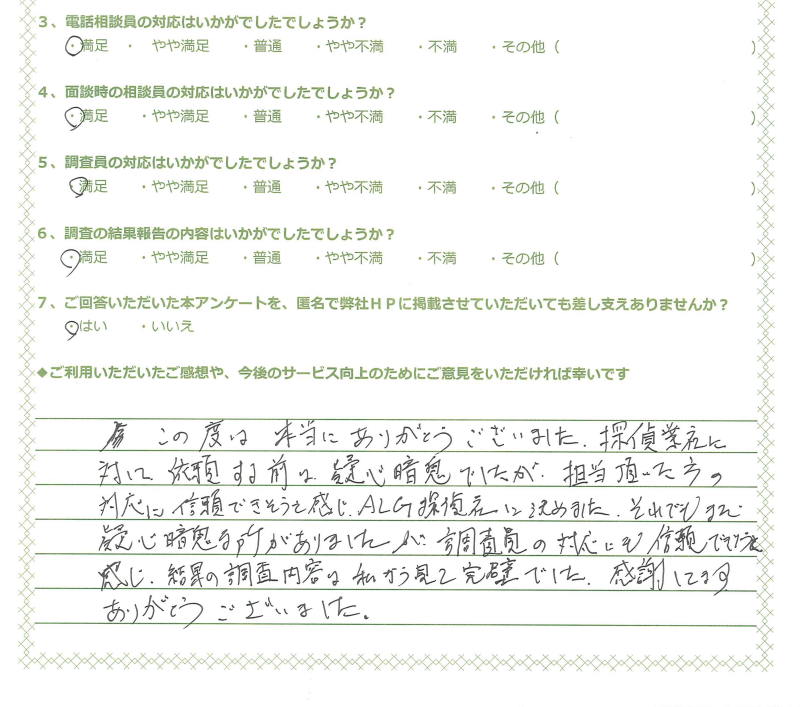 3、電話相談員の対応はいかがでしたでしょうか？
・満足 ・ やや満足 ・普通 ・やや不満 ・不満 ・その他（ ）
4、面談時の相談員の対応はいかがでしたでしょうか？
・満足 ・やや満足 ・普通 ・やや不満 ・不満 ・その他（ ）
5、調査員の対応はいかがでしたでしょうか？
・満足 ・やや満足 ・普通 ・やや不満 ・不満 ・その他（ ）
6、調査の結果報告の内容はいかがでしたでしょうか？
・満足 ・やや満足 ・普通 ・やや不満 ・不満 ・その他（ ）
7、ご回答いただいた本アンケートを、匿名で弊社ＨＰに掲載させていただいても差し支えありませんか？
・はい ・いいえ
◆ご利用いただいたご感想や、今後のサービス向上のためにご意見をいただければ幸いです
この度は 本当に ありがとう ございました. 探偵業社に
対して 依頼 する 前は 疑心暗鬼 でしたが. 担当頂いた方の
対応に 信頼できそうと感じ. ALG探偵社に決めました. それでもまだ
疑心暗鬼な所がありましたが 調査員の 対応にも 信頼できそうと
感じ. 結果の調査内容は 私から見て完璧でした. 感謝してます
ありがとう ございました。